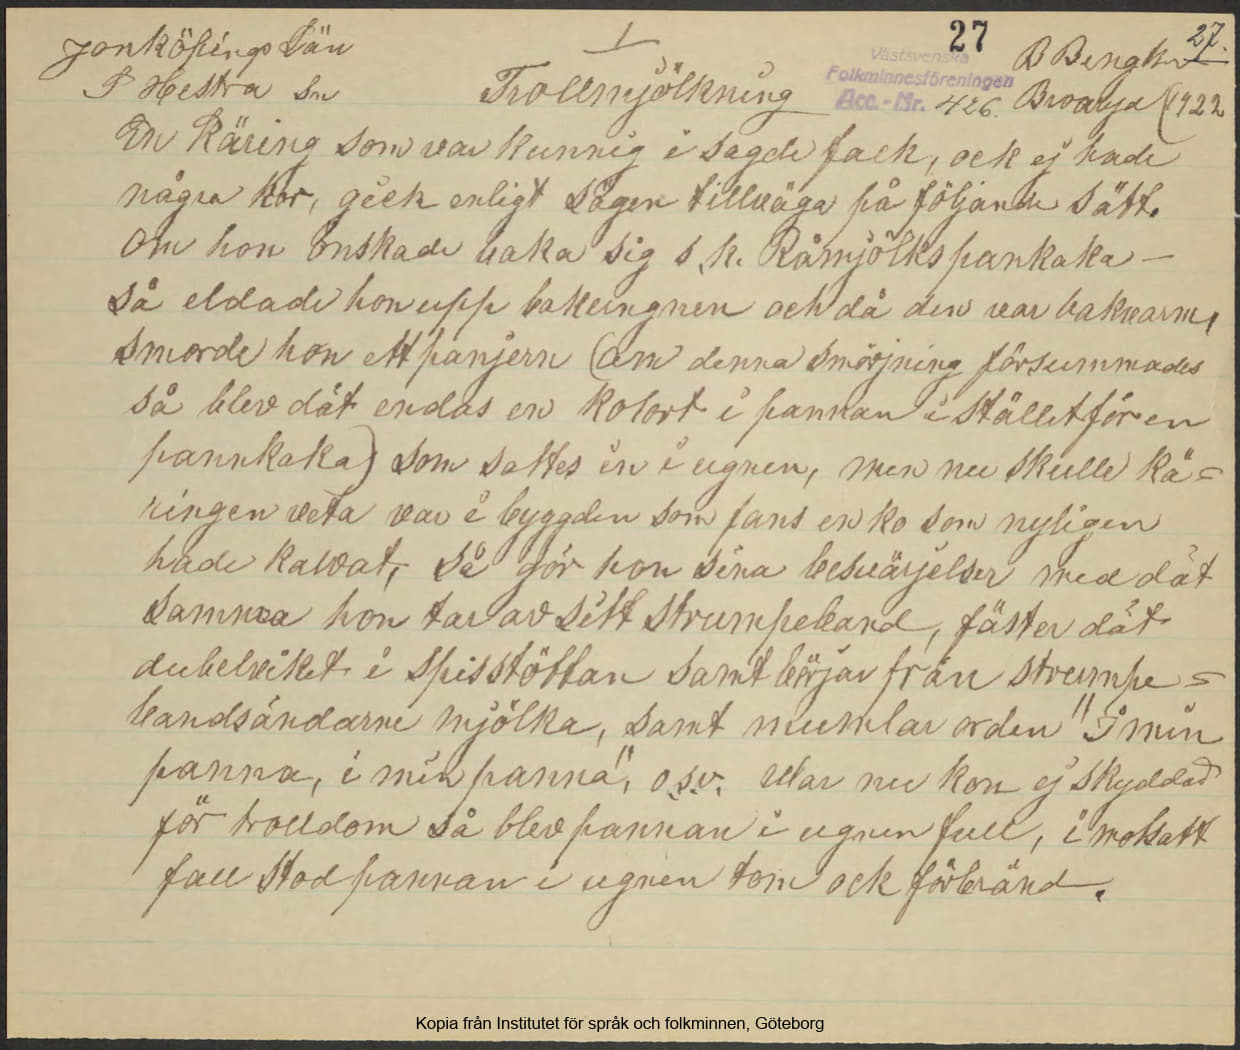 27
27.
Jönköpings Län
1
Västsvenska
Folkminnesföreningen
Acc.-Nr. 426.
S Hestra Sn
Trollmjölkning
B Bengtsson
Broaryd (1922
En Käring som var kunnig i sagde fack, ock ej hade
några kor, gick enligt sägen tillväga på följande sätt.
Om hon önskade baka sig s.k. Råmjölkspankaka –
så eldade hon upp bakeungnen och då den var bakvarm,
smorde hon ett panjern (om denna smörjning försummades
så blev dät endas en kolort i pannan i stället för en
pannkaka) som sattes in i ugnen, men nu skulle kä=
ringen veta var i byggden som fans en ko som nyligen
hade kalvat, så gör hon sina besvärjelser med dät
samma hon tar av sitt strumpeband, fäster dät
dubelviket i spisstöttan samt börjar från strumpe=
bandsändarne mjölka, samt mumlar orden "I min
panna, i min panna", o.s.v. Var nu kon ej skyddad
för trolldom så blev pannan i ugnen full, i motsatt
fall stod pannan i ugnen tom ock förbränd.
Kopia från Institutet för språk och folkminnen, Göteborg